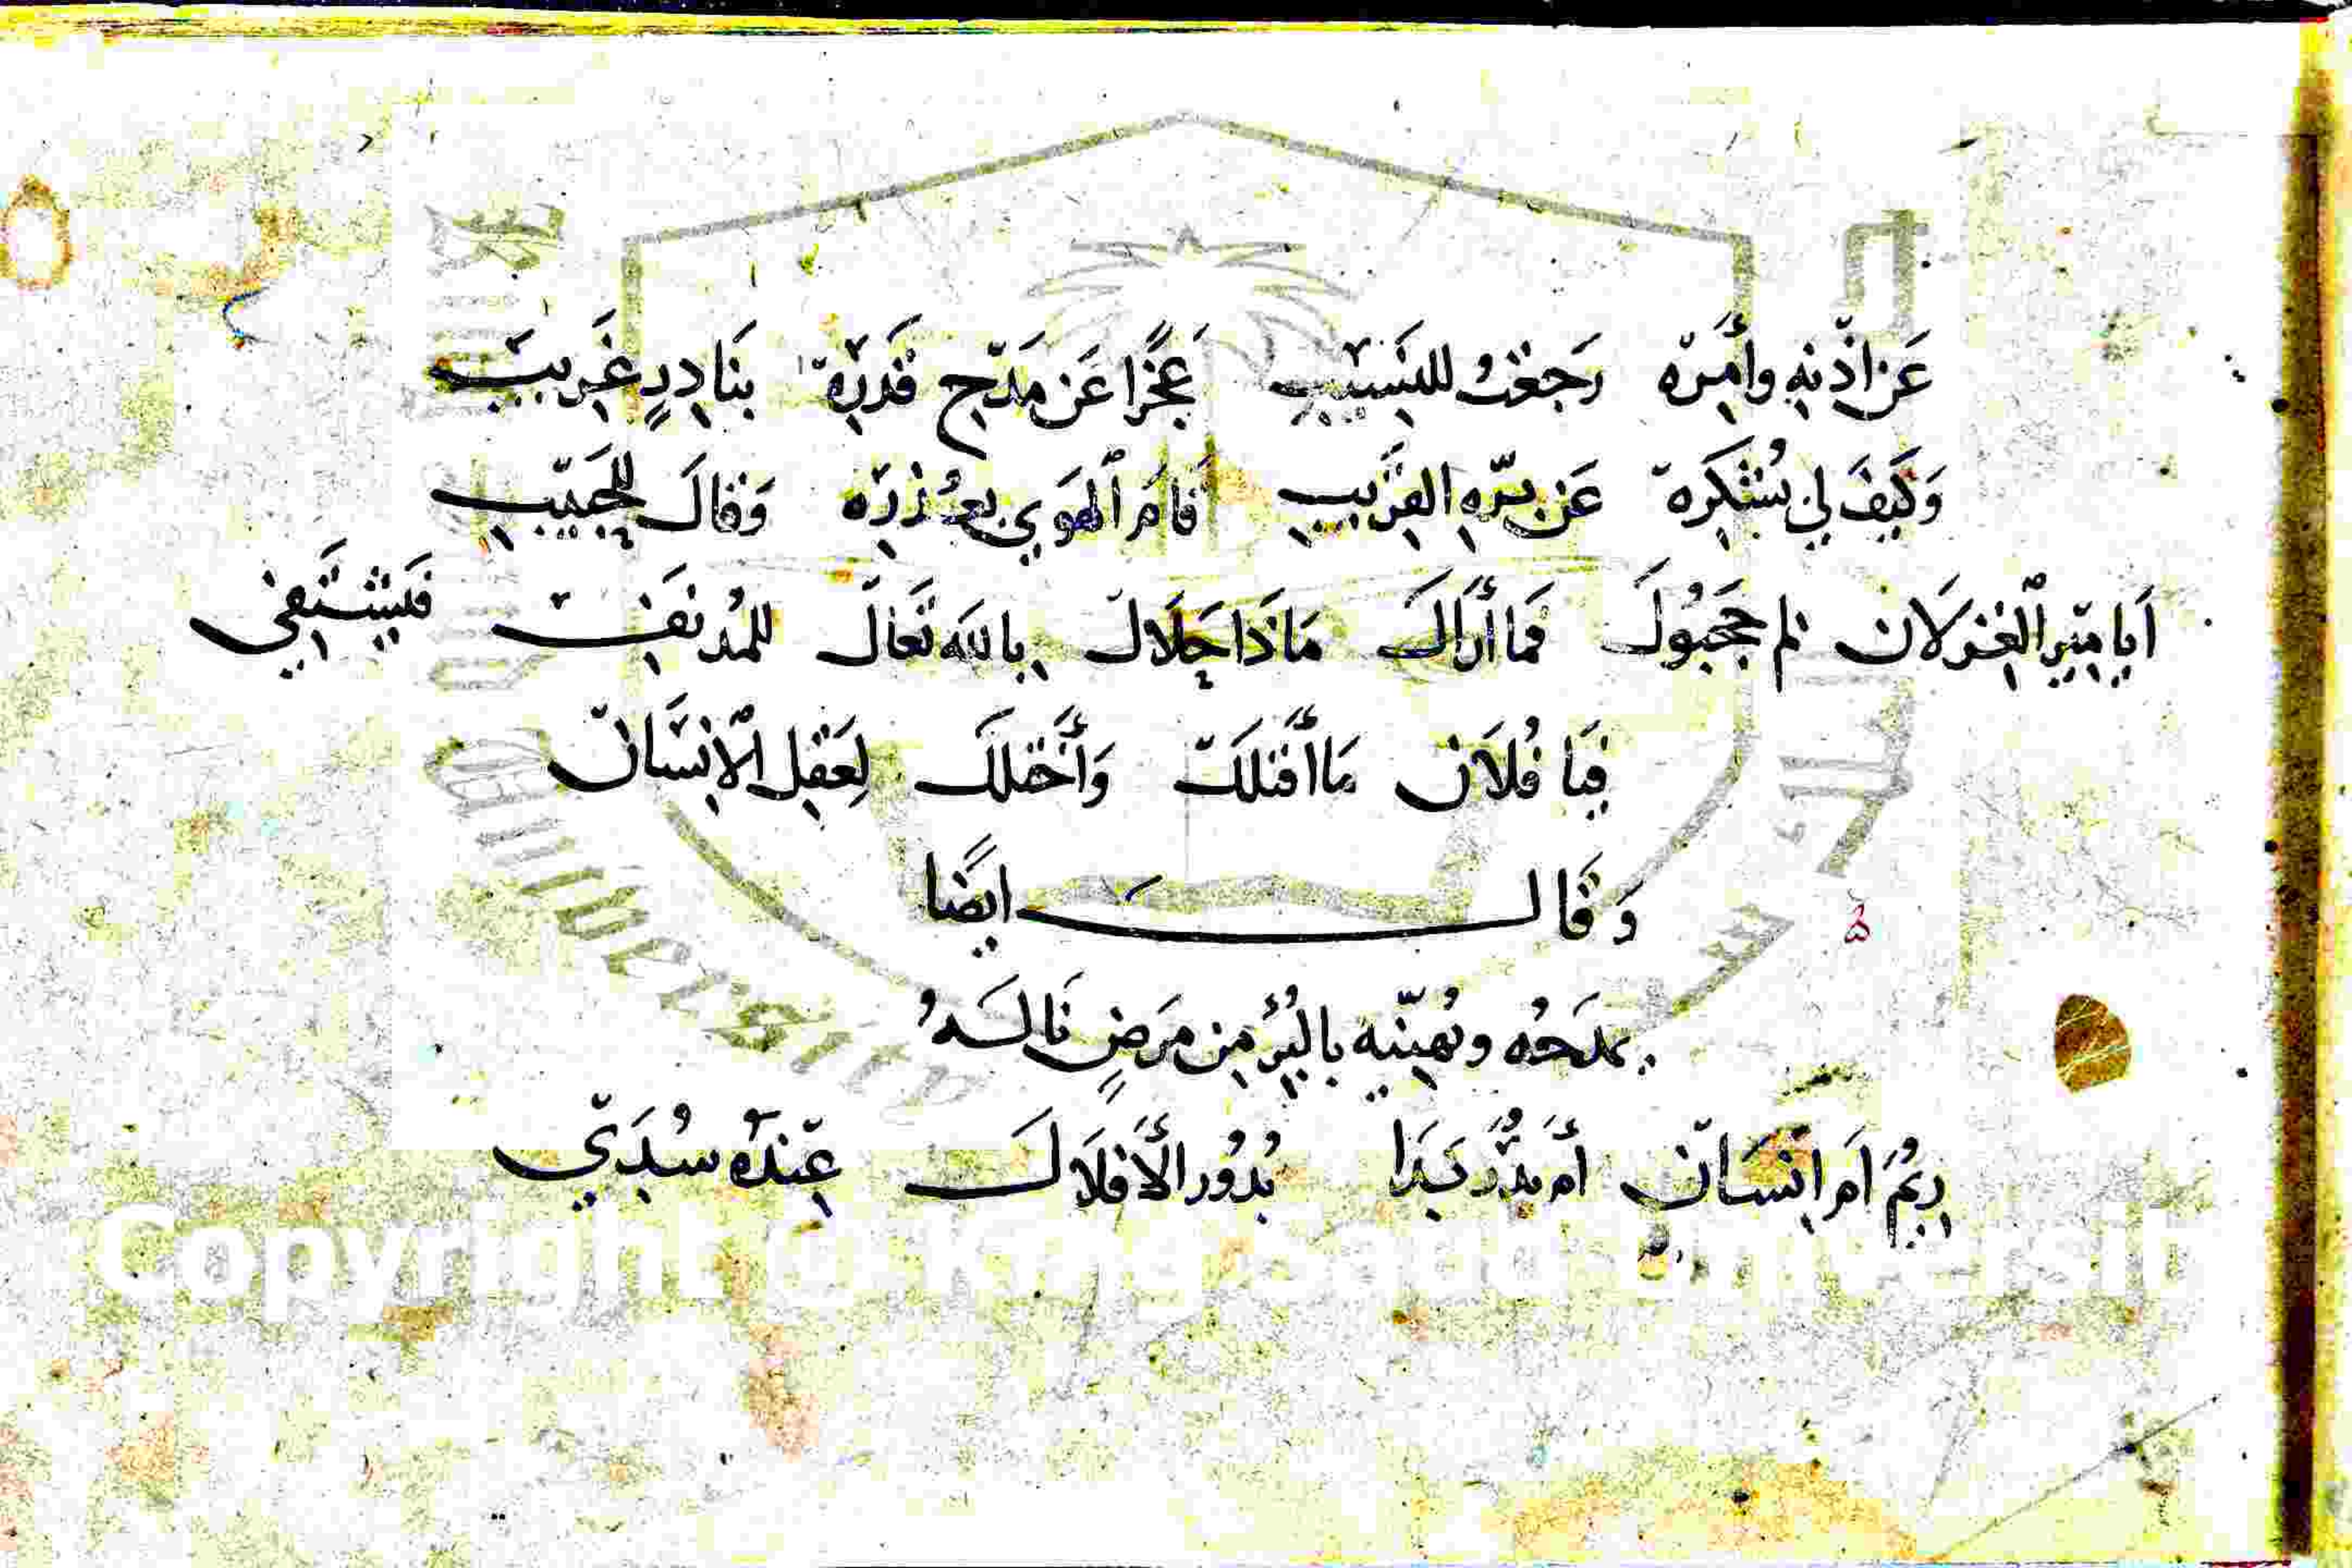 عَن اذْنِهِ وأَمْرِهْ رَجَعْتُ للنَسيبِ عَجْزًا عَن مَدْحِ قَدْرِهْ بنَادِرٍ غَرِيبْ
وَكَيفَ لي بُشُكرِهْ عَن بِرّهِ القَرِيبِ أَقامَ الهَوي بعُذْرِه وَقالَ للحَبيب
أَيا مير الغزلان لم حجبُوكَ فَما أَرَاكَ مَاذَا حَلَالْ بِاللهَ تَعَالَ للمُدنَفِ فَيشْتَفي
فَيَا فُلَان مَا أَقتلَكْ وَأَختلَكْ لِعَقلِ الاِنسَانْ
وَقَالَ ايضًا
يمدَحُه ويُهنّيه بالبُرْءِ مِن مَرَضٍ نَالَهُ
رِيمُ اَم اِنسَان أم بَدْرُ بَدَا بُدُور الأَفلَاكَ عِندَهُ سُدَيْ
Copyright © King Saud University